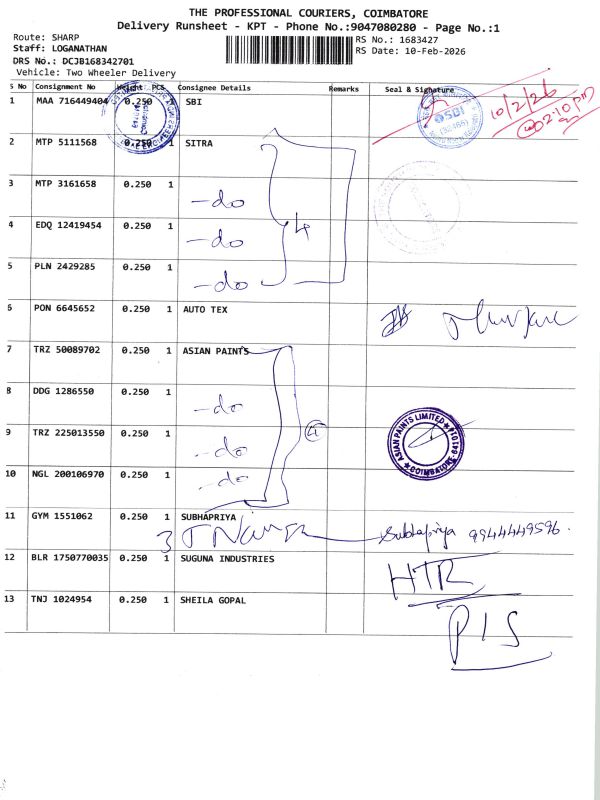 THE PROFESSIONAL COURIERS, COIMBATORE
Delivery Runsheet - KPT - Phone No.:9047080280 - Page No.:1
Route: SHARP
RS No.: 1683427
Staff: LOGANATHAN
RS Date: 10-Feb-2026
DRS No.: DCJB168342701
Vehicle: Two Wheeler Delivery
S No Consignment No Weight PCS Consignee Details Remarks Seal & Signature
1 MAA 716449404 0.250 SBI SBI 10/2/26
@02:10 PM
2 MTP 5111568 0.250 1 SITRA
3 MTP 3161658 0.250 1 -do
4 EDQ 12419454 0.250 1 -do 4
5 PLN 2429285 0.250 1 -do
6 PON 6645652 0.250 1 AUTO TEX
7 TRZ 50089702 0.250 1 ASIAN PAINTS
8 DDG 1286550 0.250 1 -do
9 TRZ 225013550 0.250 1 -do 4 ASIAN PAINTS LIMITED COIMBATORE-641014
10 NGL 200106970 0.250 1 -do
11 GYM 1551062 0.250 1 SUBHAPRIYA
3 Subhapriya 9944449596.
12 BLR 1750770035 0.250 1 SUGUNA INDUSTRIES HTR
13 TNJ 1024954 0.250 1 SHEILA GOPAL PIS